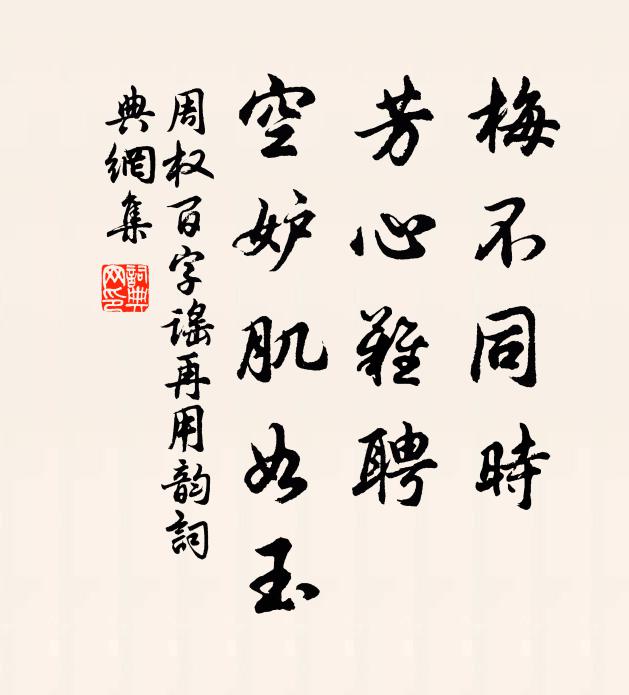 梅不同時
芳心難聘
空妒肌如玉
周权百字謠再用韵詞
典網集
詞典網印